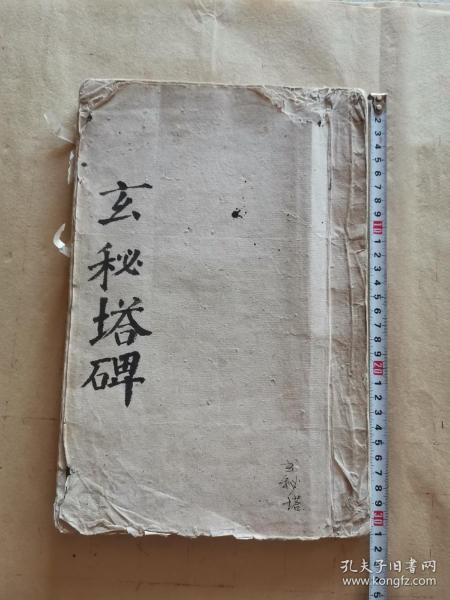 玄秘塔碑
玄秘塔
2 3 4 5 6 7 8 9 10 1 2 3 4 5 6 7 8 9 20 1 2 3 4 5 6 7 8 9 30 1 2 3 4 5
孔夫子旧书网
www.kongfz.com